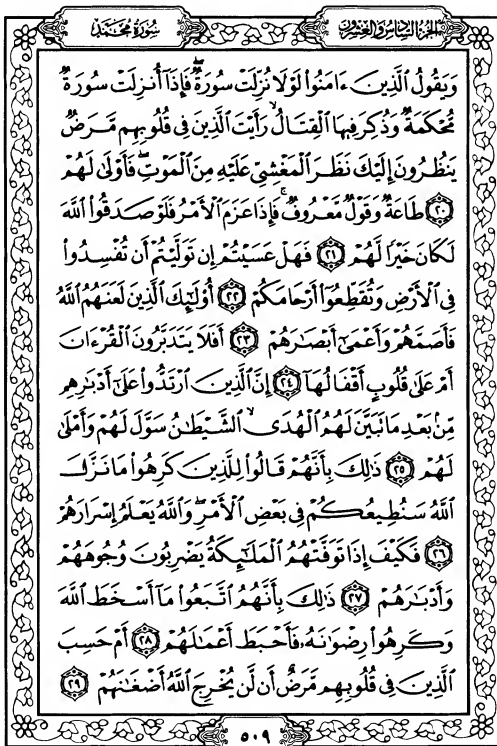 سُورَةُ مُحَمَّدٍ
الجزء السادس والعشرون
وَيَقُولُ ٱلَّذِينَ ءَامَنُوا۟ لَوْلَا نُزِّلَتْ سُورَةٌ ۖ فَإِذَآ أُنزِلَتْ سُورَةٌ
مُّحْكَمَةٌ وَذُكِرَ فِيهَا ٱلْقِتَالُ ۙ رَأَيْتَ ٱلَّذِينَ فِى قُلُوبِهِم مَّرَضٌ
يَنظُرُونَ إِلَيْكَ نَظَرَ ٱلْمَغْشِىِّ عَلَيْهِ مِنَ ٱلْمَوْتِ ۖ فَأَوْلَىٰ لَهُمْ
٢٠ طَاعَةٌ وَقَوْلٌ مَّعْرُوفٌ ۚ فَإِذَا عَزَمَ ٱلْأَمْرُ فَلَوْ صَدَقُوا۟ ٱللَّهَ
لَكَانَ خَيْرًا لَّهُمْ ٢١ فَهَلْ عَسَيْتُمْ إِن تَوَلَّيْتُمْ أَن تُفْسِدُوا۟
فِى ٱلْأَرْضِ وَتُقَطِّعُوٓا۟ أَرْحَامَكُمْ ٢٢ أُو۟لَٰٓئِكَ ٱلَّذِينَ لَعَنَهُمُ ٱللَّهُ
فَأَصَمَّهُمْ وَأَعْمَىٰٓ أَبْصَٰرَهُمْ ٢٣ أَفَلَا يَتَدَبَّرُونَ ٱلْقُرْءَانَ
أَمْ عَلَىٰ قُلُوبٍ أَقْفَالُهَآ ٢٤ إِنَّ ٱلَّذِينَ ٱرْتَدُّوا۟ عَلَىٰٓ أَدْبَٰرِهِم
مِّنۢ بَعْدِ مَا تَبَيَّنَ لَهُمُ ٱلْهُدَى ۙ ٱلشَّيْطَٰنُ سَوَّلَ لَهُمْ وَأَمْلَىٰ
لَهُمْ ٢٥ ذَٰلِكَ بِأَنَّهُمْ قَالُوا۟ لِلَّذِينَ كَرِهُوا۟ مَا نَزَّلَ
ٱللَّهُ سَنُطِيعُكُمْ فِى بَعْضِ ٱلْأَمْرِ ۖ وَٱللَّهُ يَعْلَمُ إِسْرَارَهُمْ
٢٦ فَكَيْفَ إِذَا تَوَفَّتْهُمُ ٱلْمَلَٰٓئِكَةُ يَضْرِبُونَ وُجُوهَهُمْ
وَأَدْبَٰرَهُمْ ٢٧ ذَٰلِكَ بِأَنَّهُمُ ٱتَّبَعُوا۟ مَآ أَسْخَطَ ٱللَّهَ
وَكَرِهُوا۟ رِضْوَٰنَهُۥ فَأَحْبَطَ أَعْمَٰلَهُمْ ٢٨ أَمْ حَسِبَ
ٱلَّذِينَ فِى قُلُوبِهِم مَّرَضٌ أَن لَّن يُخْرِجَ ٱللَّهُ أَضْغَٰنَهُمْ ٢٩
٥٠٩